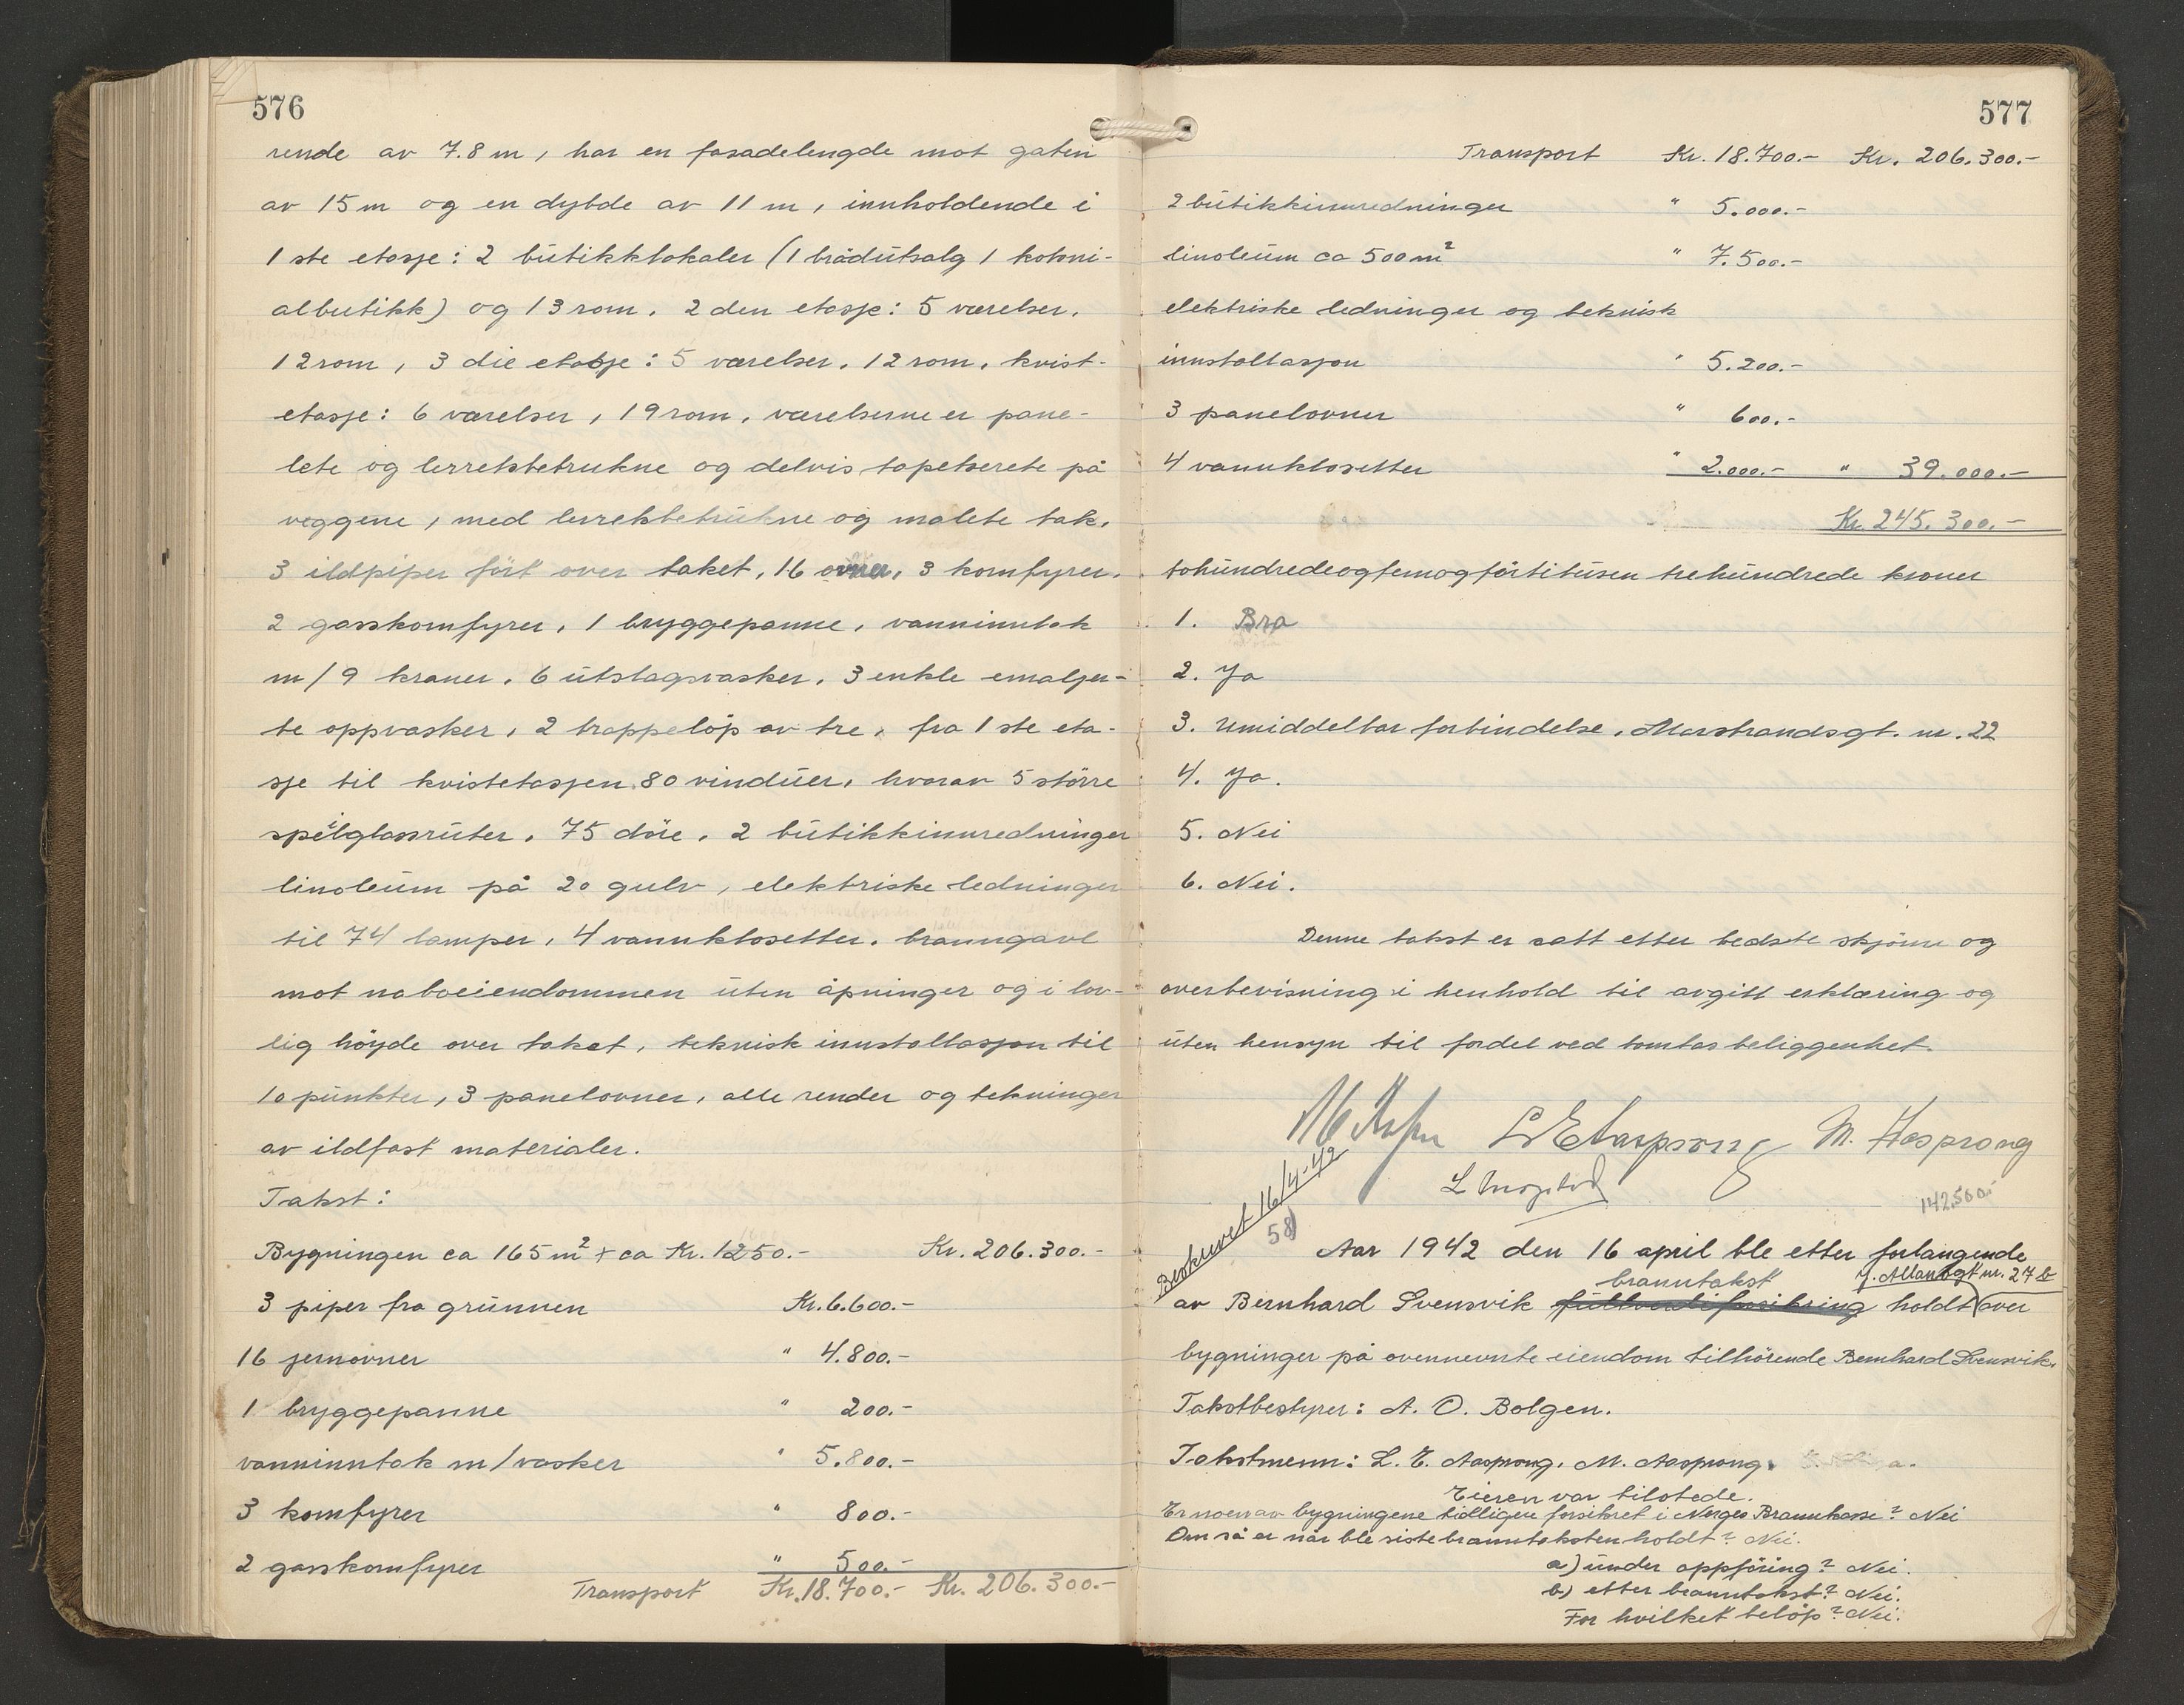 576
rende av 7.8 m, har en fasadelengde mot gaten
av 15 m og en dybde av 11 m, innholdende i
1 ste etasje: 2 butikklokaler (1 brödutsalg 1 koloni-
albutikk) og 13 rom. 2 den etasje: 5 værelser.
12 rom, 3 die etasje: 5 værelser. 12 rom. kvist-
etasje: 6 værelser, 19 rom. værelserne er pane-
lete og lerretsbetrukne og delvis tapetserete på
veggene, med lerretsbetrukne og malete tak.
3 ildpiper fört over taket, 16 ovner, 3 komfyrer.
2 gasskomfyrer, 1 bryggepanne, vanninntak
m/9 kraner. 6 utslagsvasker. 3 enkle emaljer-
te oppvasker, 2 trappelöp av tre, fra 1 ste eta-
sje til kvistetasjen. 80 vinduer, hvorav 5 större
speilglassruter. 75 döre. 2 butikkinnredninger
linoleum på 20 gulv, elektriske ledninger
til 74 lamper, 4 vannklosetter. branngavl
mot naboeiendommen uten åpninger og i lov-
lig höyde over taket, teknisk innstallasjon til
10 punkter, 3 panelovner, alle render og tekninger
av ildfast materialer.
Takst:
Bygningen ca 165 m² + ca Kr. 1250.- Kr. 206.300.-
3 piper fra grunnen Kr. 6.600.-
16 jernovner " 4.800.-
1 bryggepanne " 200.-
vanninntak m/vasker " 5.800.-
3 komfyrer " 800.-
2 gasskomfyrer " 500.-
Transport Kr. 18.700.- Kr. 206.300.-
577
Transport Kr. 18.700.- Kr. 206.300.-
2 butikkinnredninger " 5.000.-
linoleum ca 500 m² " 7.500.-
elektriske ledninger og teknisk
innstallasjon " 5.200.-
3 panelovner " 600.-
4 vannklosetter " 2.000.- " 39.000.-
Kr. 245.300.-
tohundredeogfemogförtitusen trehundrede kroner
1. Bra
2. Ja
3. Umiddelbar forbindelse. Marstrandsgt. nr. 22
4. Ja.
5. Nei
6. Nei.
Denne takst er satt etter bedste skjönn og
overbevisning i henhold til avgitt erklæring og
uten hensyn til fordel ved tomtas beliggenhet.
L E Aasprong M. Aasprong
142.500.-
Beskrevet 16/4-42
58)
Aar 1942 den 16 april ble etter forlangende
branntakst J. Allansgt nr. 27 b
av Bernhard Svensvik fullverdiforsikring holdt over
bygninger på ovennevnte eiendom tilhörende Bernhard Svensvik.
Takstbestyrer: A. O. Bolgen.
Takstmenn: L. E. Aasprong. M. Aasprong.
Eieren var tilstede.
Er noen av bygningene tidligere forsikret i Norges Brannkasse? Nei
Om så er når ble siste branntaksten holdt? Nei.
a) under oppföring? Nei.
b) etter branntakst? Nei.
For hvilket belöp? Nei.